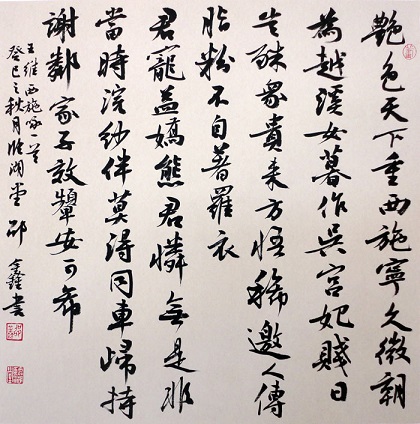 艷色天下重西施寧久微朝
為越溪女暮作吳宮妃賤日
豈殊衆貴来方悟稀邀人傅
脂粉不自著羅衣
君寵益嬌態君憐無是非
當時浣紗伴莫得同車歸持
謝鄰家子效顰安可希
王維西施詠一首
癸巳之秋月堂邵鑫書